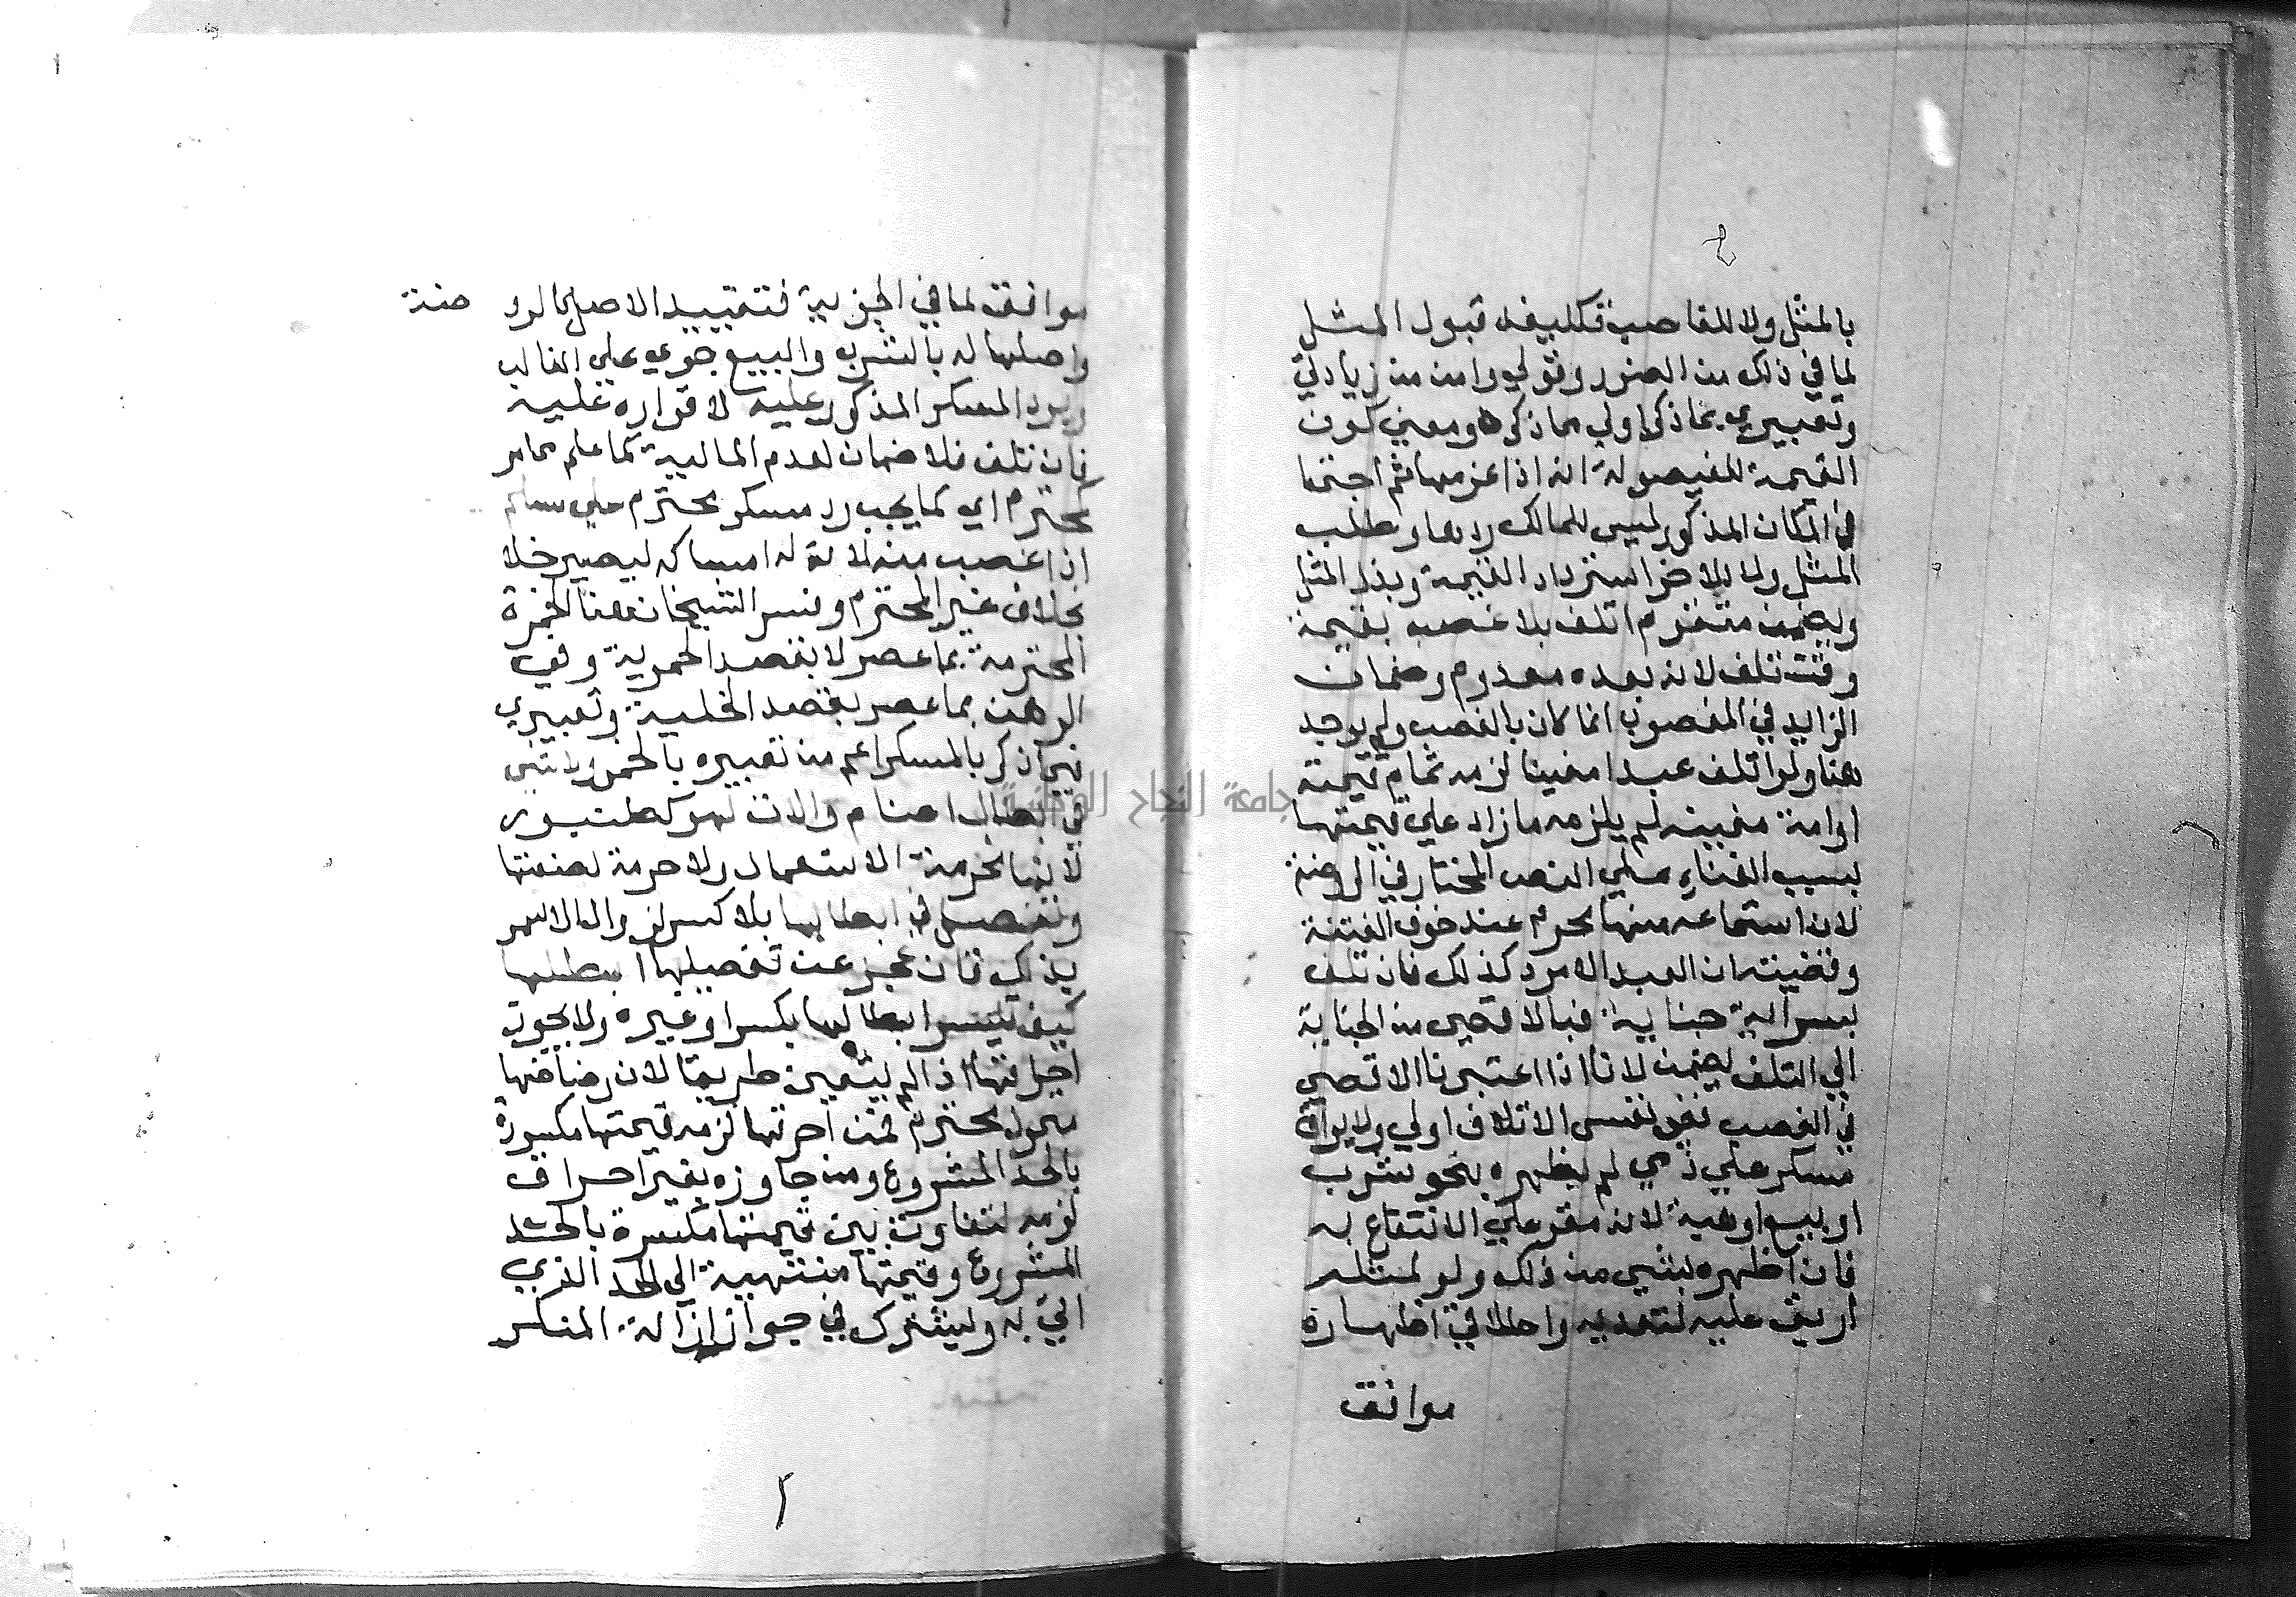 بالمثل ولا للغاصب تكليفه قبول المثل
لما في ذلك من الضرر وقولي وامن من زيادتي
وتعبيري بما ذكر اولي مما ذكره ومعني كون
القيمة للفيصولة انه اذا غرمها ثم اجتمعا
في المكان المذكور ليس للمالك ردها وطلب
المثل ولا للاخر استرداد القيمة وبذل المثل
ويضمن متقوم اتلف بلا غصب بقيمة
وقت تلف لانه بعده معدوم وضمان
الزايد في المغصوب انما كان بالغصب ولم يوجد
هنا ولو اتلف عبدا مغنيا لزمه تمام قيمته
او امة مغنية لم يلزمه ما زاد علي قيمتها
بسبب الغناء علي النص المختار في الروضة
لان استماعه منها محرم عند خوف الفتنة
وقضيته ان العبد الامرد كذلك فان تلف
بسراية جناية فبالاقصي من الجناية
الي التلف يضمن لانا اذا اعتبرنا الاقصي
في الغصب ففي نفس الاتلاف اولي ولا يراق
مسكر علي ذمي لم يظهره بنحو شرب
او بيع او هبة لانه مقر علي الانتفاع به
فان اظهره بشي من ذلك ولو لمثله
اريق عليه لتعديه واطلاقي اظهاره
موافق
موافق لما في الجزية فتقييد الاصل كالروضة
واصلها له بالشرب والبيع جري علي الغالب
ويرد المسكر المذكور عليه لاقراره عليه
فان تلف فلا ضمان لعدم المالية كما علم مما مر
كمحترم اي كما يجب رد مسكر محترم علي مسلم
اذا غصب منه لان له امساكه ليصير خلا
بخلاف غير المحترم وفسر الشيخان هنا الخمرة
المحترمة بما عصر لا بقصد الخمرية وفي
الرهن بما عصر بقصد الخلية وتعبيري
فيما ذكر بالمسكر اعم من تعبيره بالخمر ولا شي
في ابطال اصنام والات لهو كطنبور
لانها محرمة الاستعمال ولا حرمة لصنعتها
وتفصل في ابطالها بلا كسر لزوال الاسم
بذلك فان عجز عن تفصيلها ابطلها
كيف تيسر ابطالها بكسر او غيره ولا يجوز
احراقها اذا لم يتعين طريقا لان رضاضها
متمول محترم فمن احرقها لزمه قيمتها مكسورة
بالحد المشروع ومن جاوزه بغير احراق
لزمه التفاوت بين قيمتها مكسرة بالحد
المشروع وقيمتها منتهية الي الحد الذي
اتي به ويشترك في جواز ازالة المنكر
جامعة النجاح الوطنية